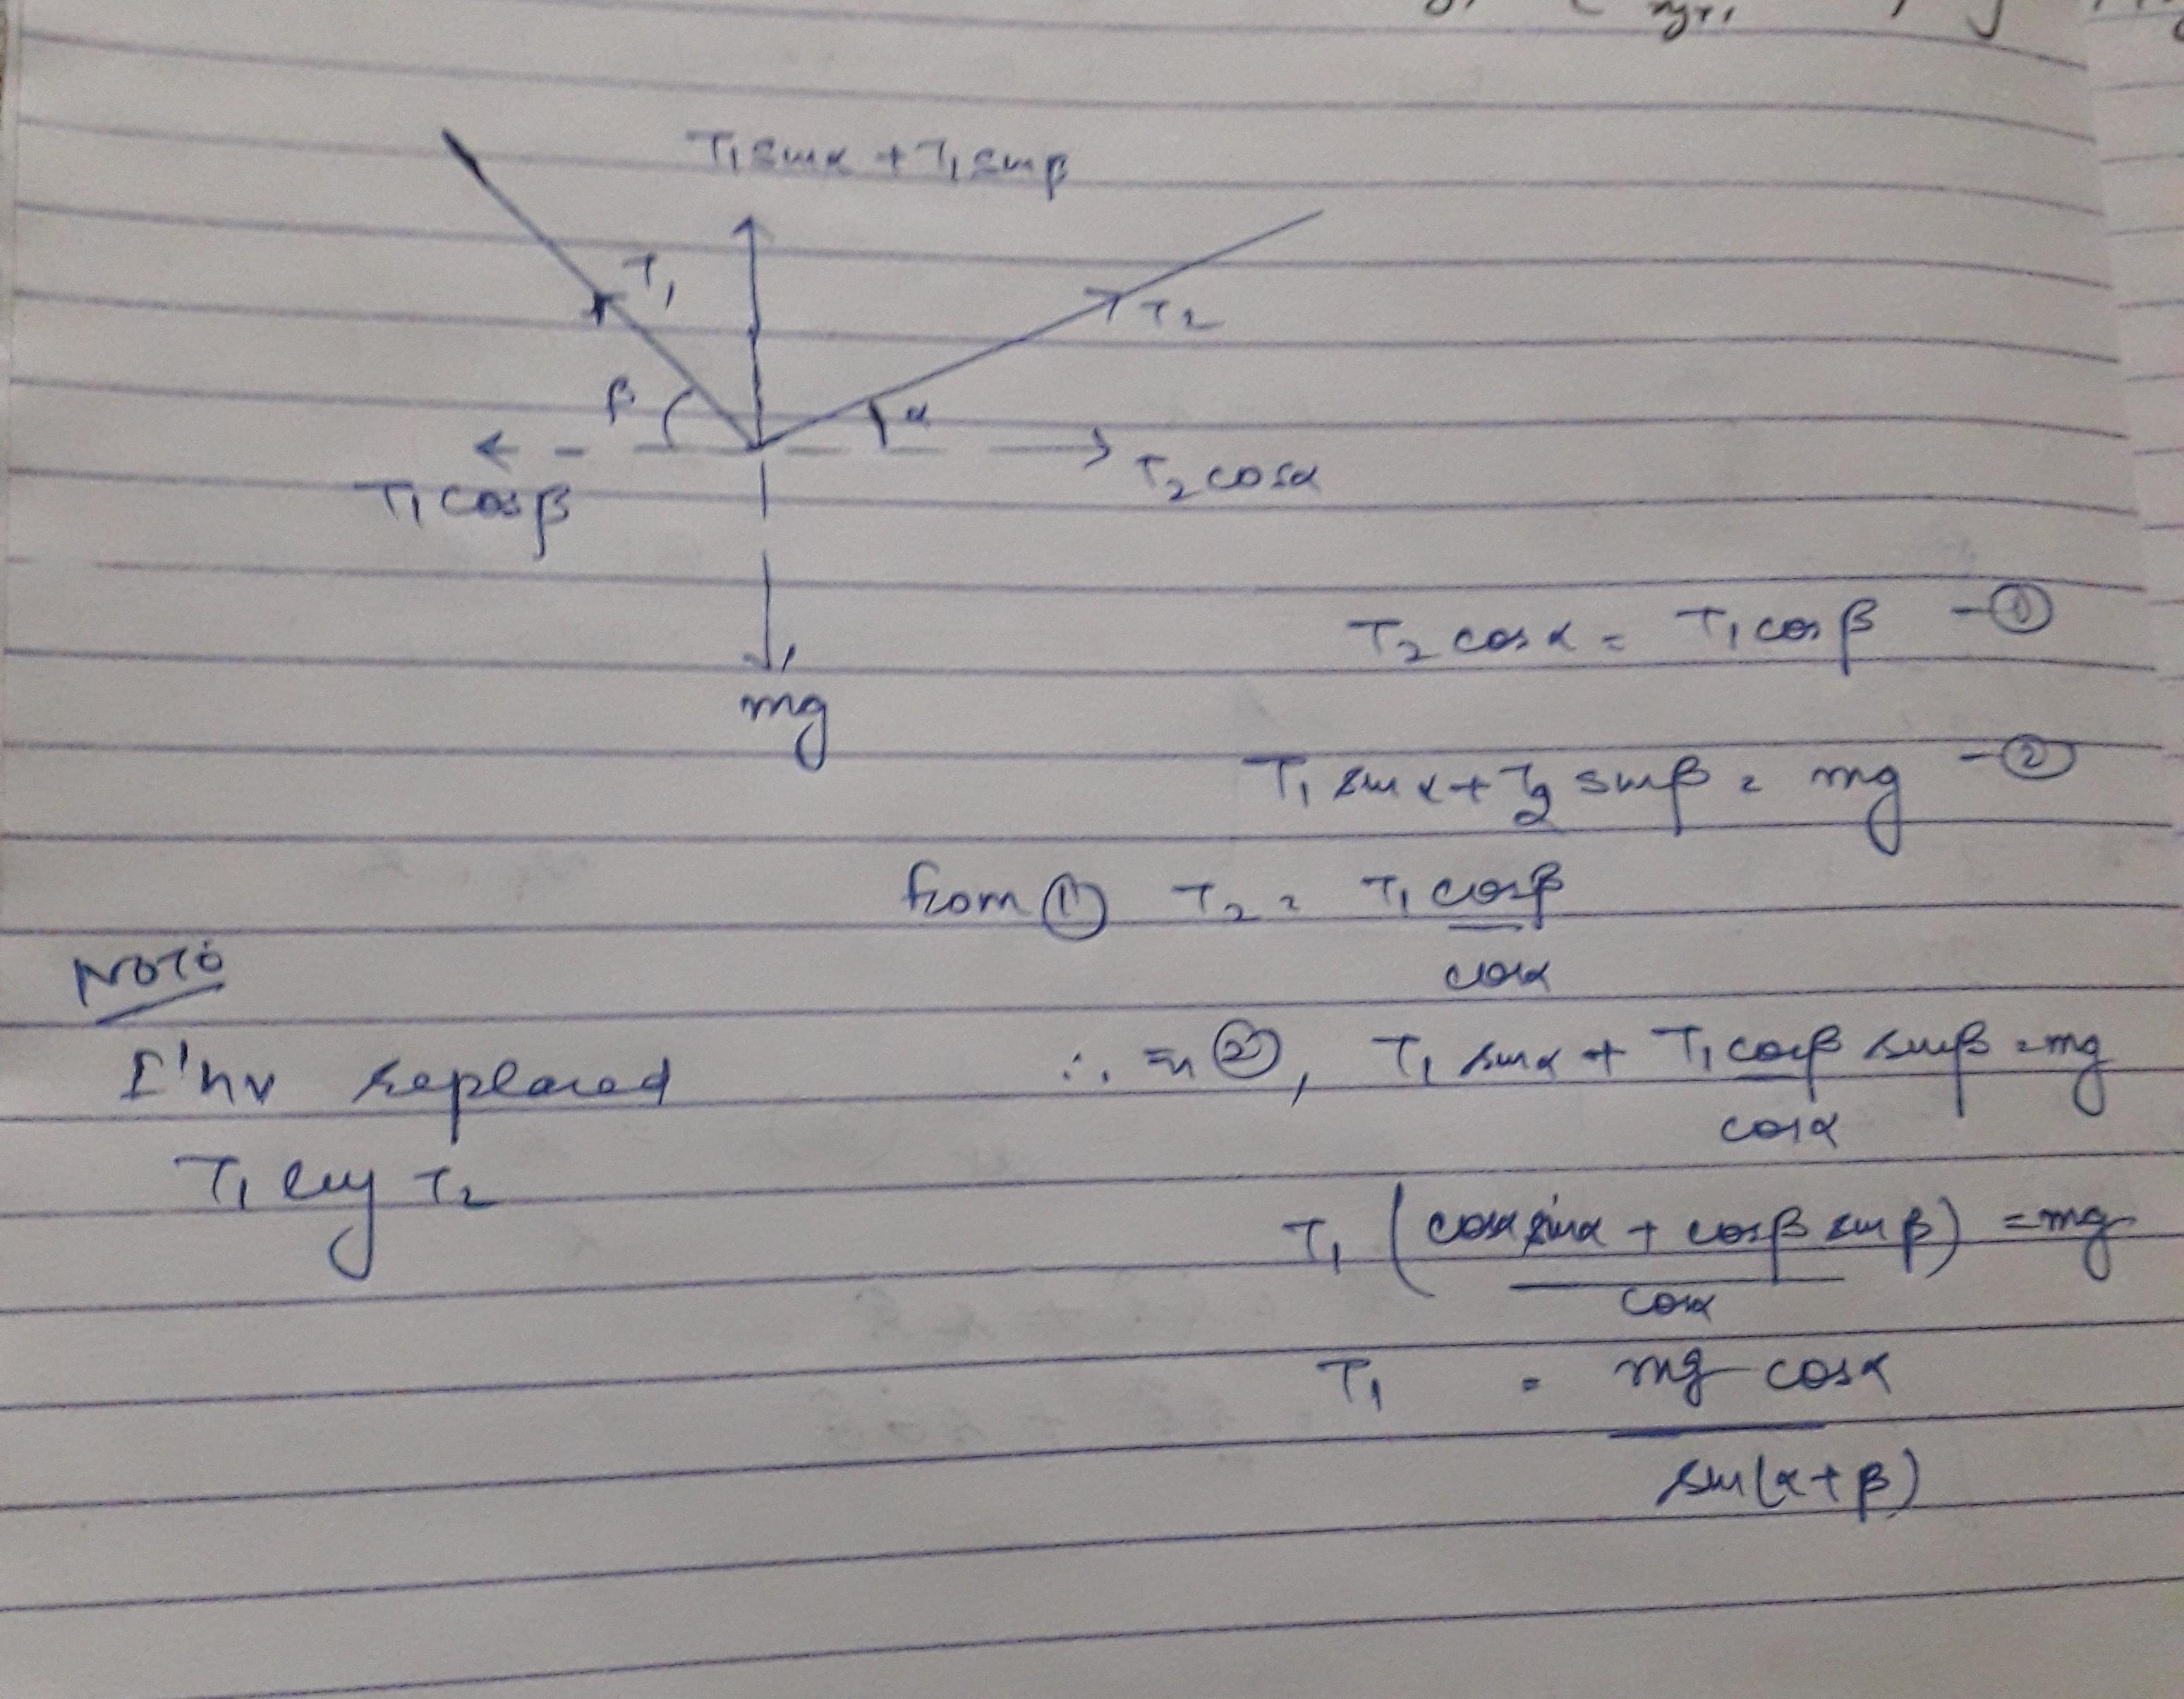 T₁ sinα + T₁ sinβ
T₁
T₂
β
α
T₁ cosβ
T₂ cosα
mg
T₂ cosα = T₁ cosβ - ①
T₁ sinα + T₂ sinβ = mg - ②
from ① T₂ = T₁ cosβ / cosα
Note
I'hv replaced
T₁ by T₂
∴ ②, T₁ sinα + T₁ cosβ sinβ / cosα = mg
T₁ (cosα sinα + cosβ sinβ) / cosα = mg
T₁ = mg cosα / sin(α+β)